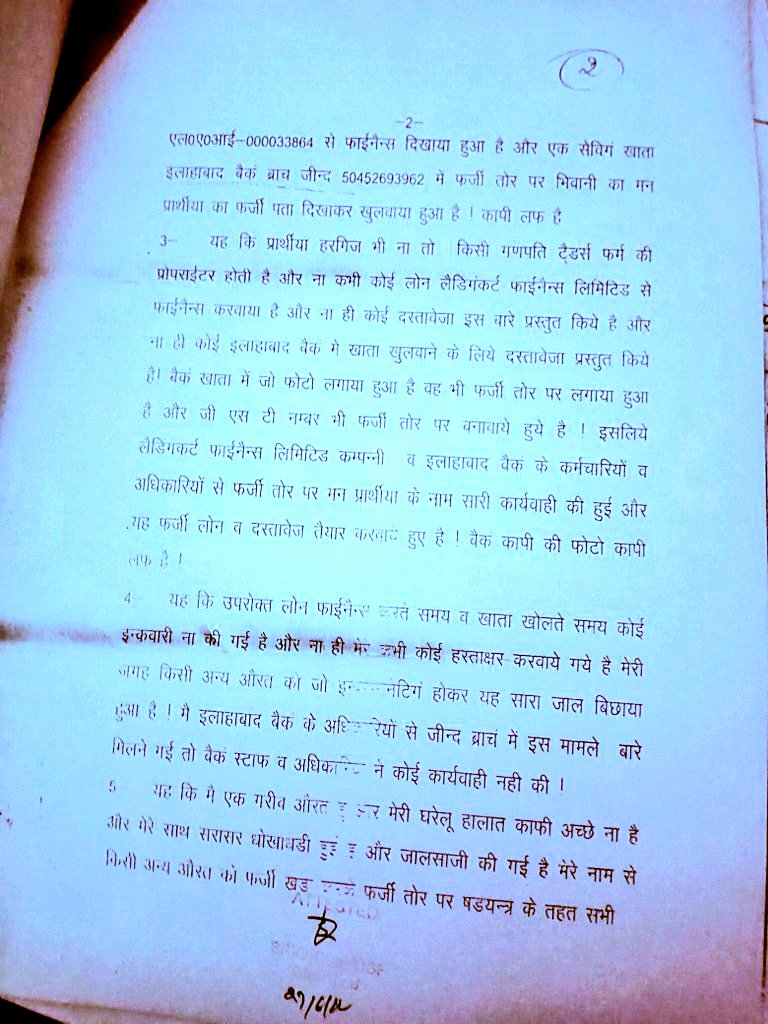 2
-2-
एल0ए0आई-000033864 से फाईनैन्स दिखाया हुआ है और एक सेविगं खाता
इलाहाबाद बैकं ब्राच जीन्द 50452693962 में फर्जी तोर पर भिवानी का मन
प्रार्थीया का फर्जी पता दिखाकर खुलवाया हुआ है ! कापी लफ है
3- यह कि प्रार्थीया हरगिज भी ना तो किसी गणपति ट्रैडर्स फर्म की
प्रोपराईटर होती है और ना कभी कोई लोन लैडिगंकर्ट फाईनैन्स लिमिटिड से
फाईनैन्स करवाया है और ना ही कोई दस्तावेजा इस बारे प्रस्तुत किये है और
ना ही कोई इलाहाबाद वैकं मे खाता खुलवाने के लिये दस्तावेजा प्रस्तुत किये
है! वैकं खाता में जो फोटो लगाया हुआ है वह भी फर्जी तोर पर लगाया हुआ
है और जी एस टी नम्बर भी फर्जी तोर पर वनावाये हुये है ! इसलिये
लैडिगकर्ट फाईनैन्स लिमिटिड कम्पन्नी व इलाहावाद वैक के कर्मचारियों व
अधिकारियों से फर्जी तोर पर मन प्रार्थीया के नाम सारी कार्यवाही की हुई और
यह फर्जी लोन व दस्तावेज तैयार करवाये हुए है ! वैकं कापी की फोटो कापी
लफ है !
4- यह कि उपरोक्त लोन फाईनैन्स करते समय व खाता खोलते समय कोई
इन्कवारी ना की गई है और ना ही मेरे कभी कोई हस्ताक्षर करवाये गये है मेरी
जगह किसी अन्य औरत को जो होकर यह सारा जाल बिछाया
हुआ है ! मै इलाहाबाद बैकं के अधिकारियों से जीन्द ब्राचं में इस मामले बारे
मिलने गई तो वैकं स्टाफ व अधिकारियों ने कोई कार्यवाही नही की !
5 यह कि मै एक गरीव औरत हू और मेरी घरेलू हालात काफी अच्छे ना है
और मेरे साथ सरासर धोखाधडी हुई है और जालसाजी की गई है मेरे नाम से
किसी अन्य औरत को फर्जी खडा करके फर्जी तोर पर षडयन्त्र के तहत सभी
ATTESTED